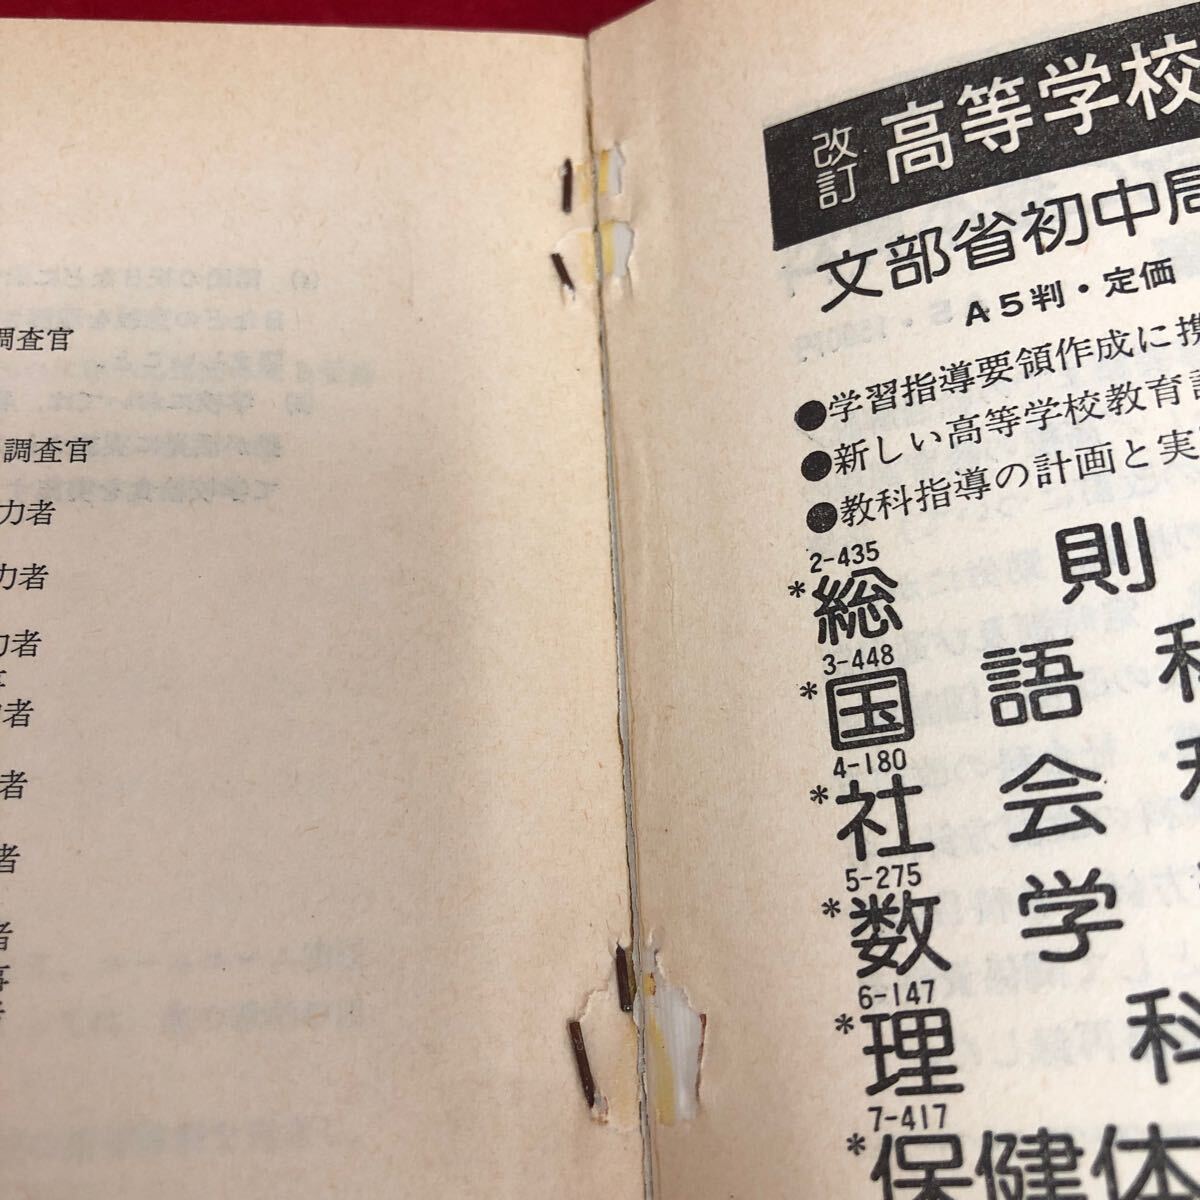 調査官
調査官
力者
力者
力者
者
者
者
者
改訂 高等学校
文部省初中局
A5判・定価
●学習指導要領作成に携
●新しい高等学校教育
●教科指導の計画と実
2-435
*総則
3-448
*国語科
4-180
*社会
5-275
*数学
6-147
*理科
7-417
*保健体